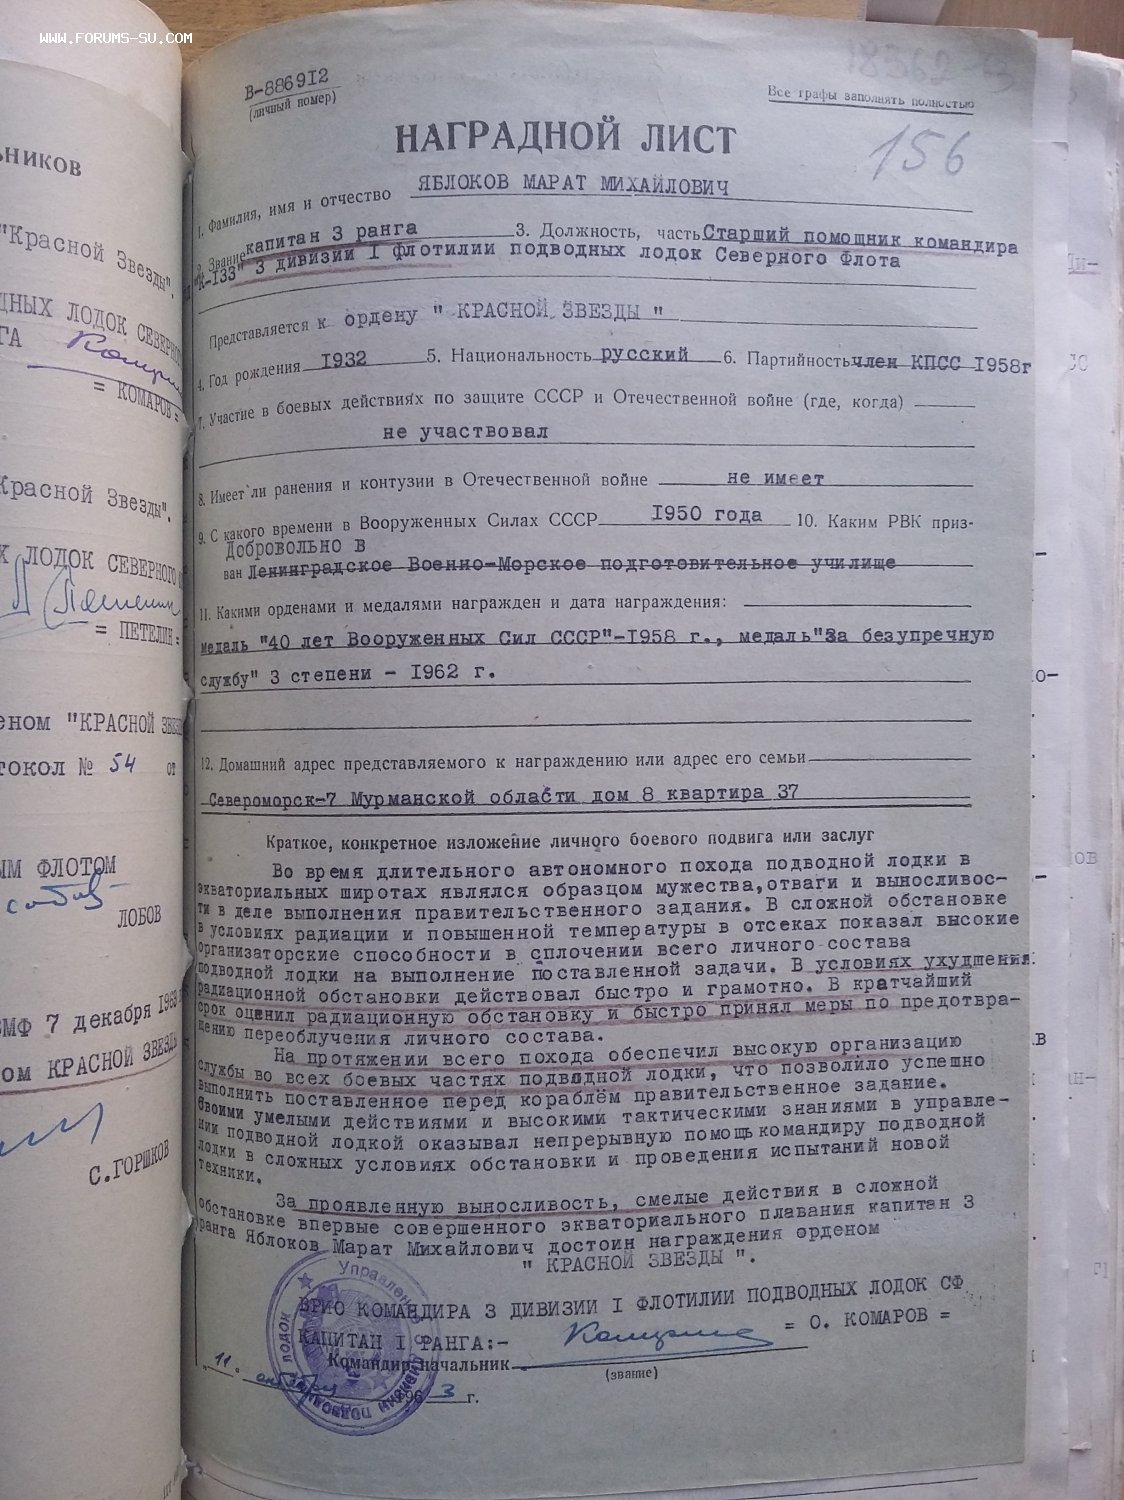 WWW.FORUMS-SU.COM
ЬНИКОВ
"Красной Звезды".
ДНЫХ ЛОДОК СЕВЕРНО
ГА
= КОМАРОВ =
Красной Звезды".
Х ЛОДОК СЕВЕРНОГО
= ПЕТЕЛИН =
еном "КРАСНОЙ ЗВЕЗД
токол № 54 от
ЫМ ФЛОТОМ
ЛОБОВ
ВМФ 7 декабря 1963
ом КРАСНОЙ ЗВЕЗДЫ
С.ГОРШКОВ
В-886912
(личный номер)
Все графы заполнять полностью
156
НАГРАДНОЙ ЛИСТ
1. Фамилия, имя и отчество ЯБЛОКОВ МАРАТ МИХАЙЛОВИЧ
2. Звание капитан 3 ранга 3. Должность, часть Старший помощник командира
"К-133" 3 дивизии I флотилии подводных лодок Северного Флота
Представляется к ордену " КРАСНОЙ ЗВЕЗДЫ "
4. Год рождения 1932 5. Национальность русский 6. Партийность член КПСС 1958г
7. Участие в боевых действиях по защите СССР и Отечественной войне (где, когда)
не участвовал
8. Имеет ли ранения и контузии в Отечественной войне не имеет
9. С какого времени в Вооруженных Силах СССР 1950 года 10. Каким РВК приз-
Добровольно в
ван Ленинградское Военно-Морское подготовительное училище
11. Какими орденами и медалями награжден и дата награждения:
Медаль "40 лет Вооруженных Сил СССР"-1958 г., медаль"За безупречную
службу" 3 степени - 1962 г.
12. Домашний адрес представляемого к награждению или адрес его семьи
Североморск-7 Мурманской области дом 8 квартира 37
Краткое, конкретное изложение личного боевого подвига или заслуг
Во время длительного автономного похода подводной лодки в
экваториальных широтах являлся образцом мужества,отваги и выносливос-
ти в деле выполнения правительственного задания. В сложной обстановке
в условиях радиации и повышенной температуры в отсеках показал высокие
организаторские способности в сплочении всего личного состава
подводной лодки на выполнение поставленной задачи. В условиях ухудшения
радиационной обстановки действовал быстро и грамотно. В кратчайший
срок оценил радиационную обстановку и быстро принял меры по предотвра-
щению переоблучения личного состава.
На протяжении всего похода обеспечил высокую организацию
службы во всех боевых частях подводной лодки, что позволило успешно
выполнить поставленное перед кораблём правительственное задание.
Своими умелыми действиями и высокими тактическими знаниями в управле-
нии подводной лодкой оказывал непрерывную помощь командиру подводной
лодки в сложных условиях обстановки и проведения испытаний новой
техники.
За проявленную выносливость, смелые действия в сложной
обстановке впервые совершенного экваториального плавания капитан 3
ранга Яблоков Марат Михайлович достоин награждения орденом
" КРАСНОЙ ЗВЕЗДЫ ".
ВРИО КОМАНДИРА 3 ДИВИЗИИ I ФЛОТИЛИИ ПОДВОДНЫХ ЛОДОК СФ
КАПИТАН I РАНГА:- = О. КОМАРОВ =
Командир, начальник
(звание)
"11" октября 1963 г.